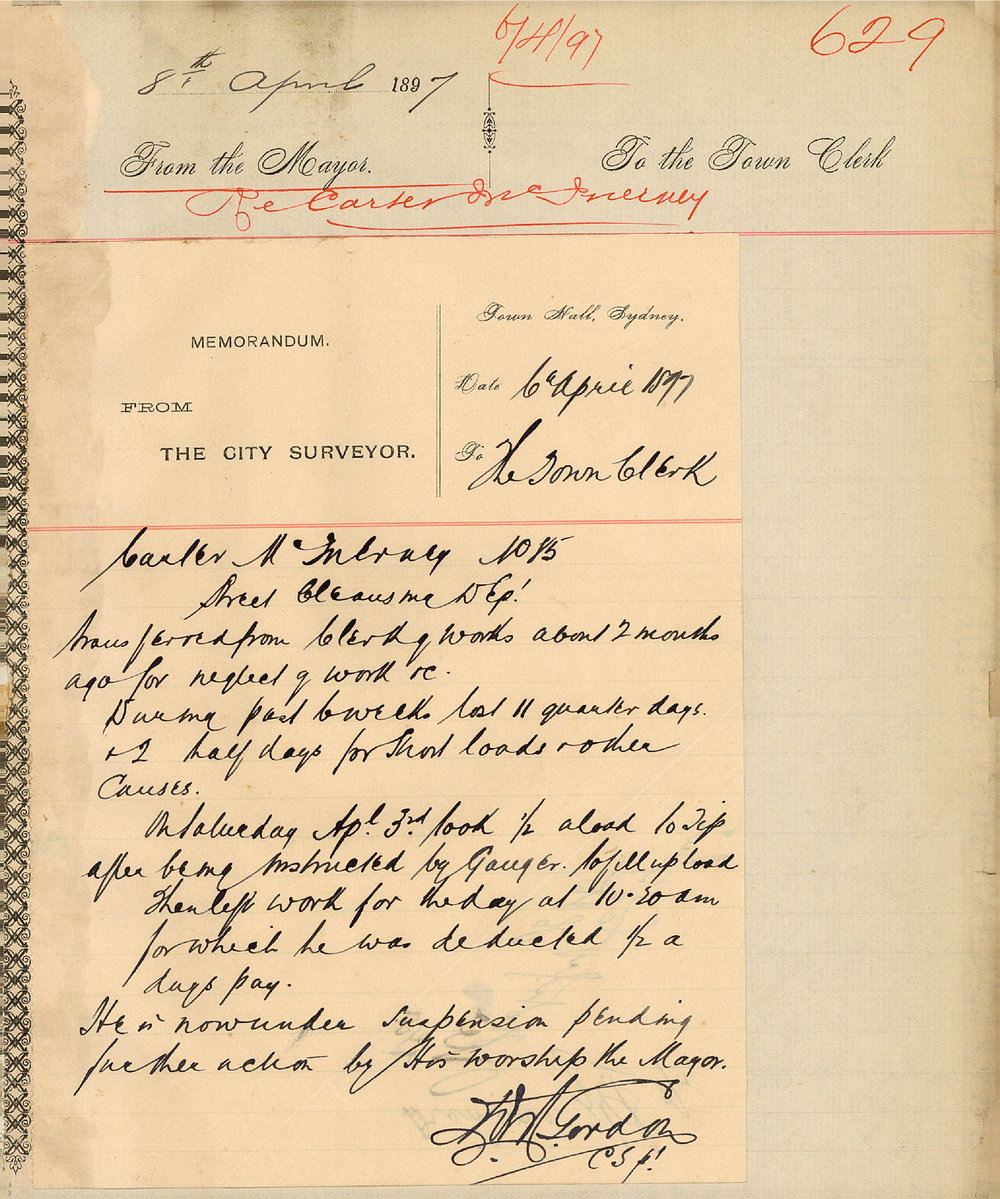 6/4/97
629
8th April 1897
From the Mayor.
To the Town Clerk
Re Carter McInerney
Town Hall, Sydney.
MEMORANDUM.
Date 6th April 1897
FROM
THE CITY SURVEYOR.
To The Town Clerk
Carter McInerney No 85
Street Cleansing Dept
transferred from Clerk of Works about 2 months
ago for neglect of work &c.
During past 6 weeks lost 11 quarter days.
& 2 half days for Short loads & other
Causes.
On Saturday Apl. 3rd took 1/2 a load to Tip
after being instructed by Ganger. to fill up load
Then left work for the day at 10.20 am
for which he was deducted 1/2 a
days pay.
He is now under Suspension pending
further action by His Worship the Mayor.
Gordon